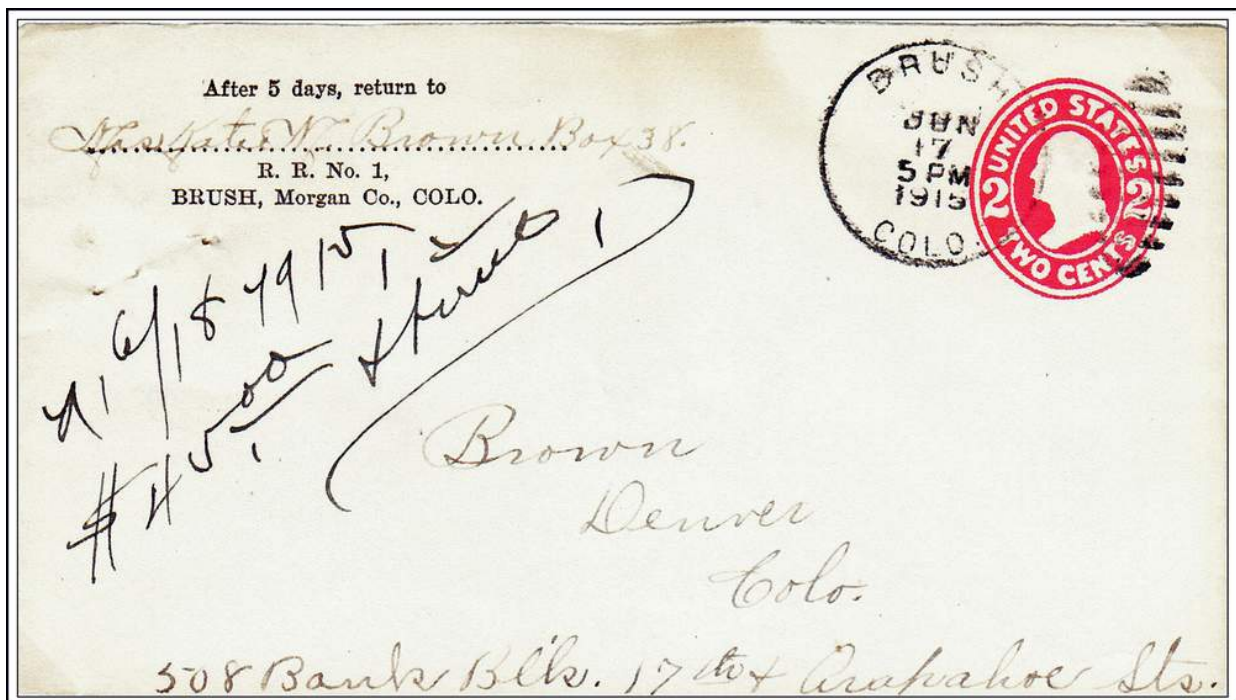 After 5 days, return to
Mrs Kate W. Brown Box 38.
R. R. No. 1,
BRUSH, Morgan Co., COLO.
BRUSH
JUN
17
5 PM
1915
COLO.
UNITED STATES
2 2
TWO CENTS
6/18 1915,
$45.00
Brown
Denver
Colo.
508 Bank Blk. 17th & Arapahoe Sts.